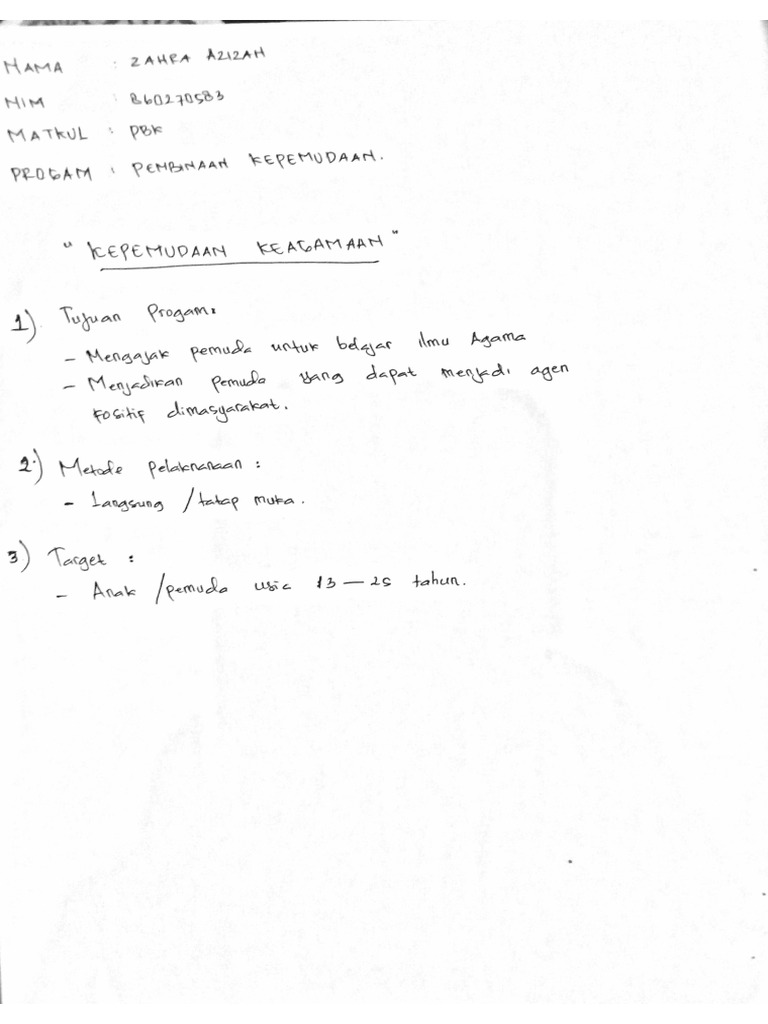 NAMA : ZAHRA AZIZAH
NIM : 860270583
MATKUL : PBK
PROGAM : PEMBINAAN KEPEMUDAAN.
" KEPEMUDAAN KEAGAMAAN "
1) Tujuan Progam:
- Mengajak pemuda untuk belajar ilmu Agama
- Menjadikan pemuda yang dapat menjadi agen
Positif dimasyarakat.
2.) Metode pelaksanaan :
- Langsung / tatap muka.
3) Target :
- Anak / pemuda usia 13 — 25 tahun.